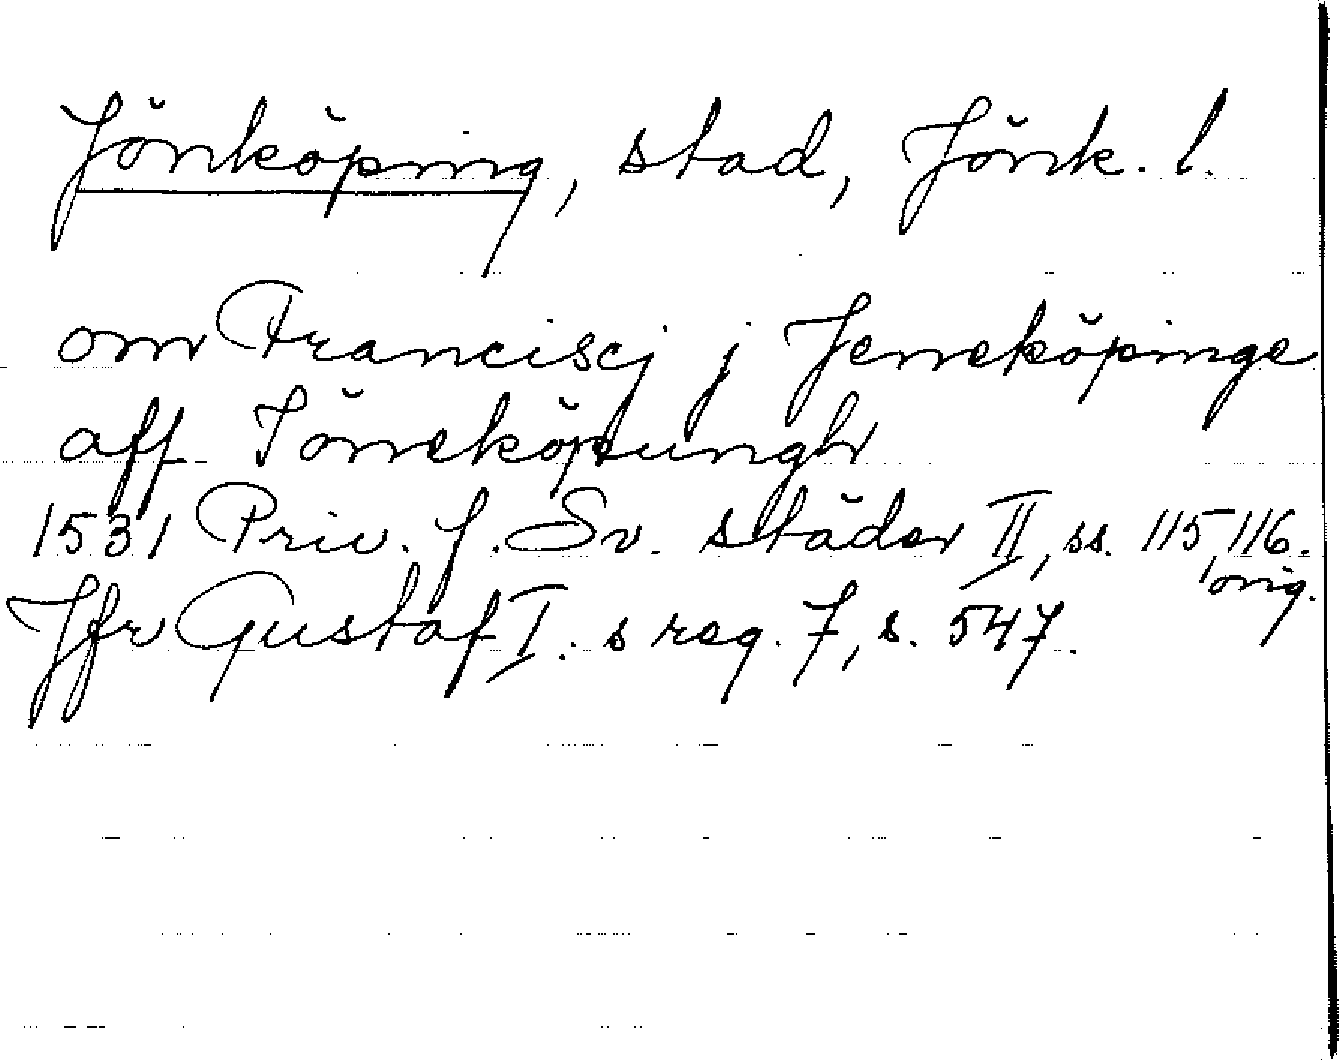 Jönköping, stad, Jönk. l.
om Franciscj j Jenneköpinge
aff Jönneköpungh
1531 Priv. f. Sv. städer II, ss. 115, 116.
orig.
Jfr Gustaf I. s reg. 7, s. 547.